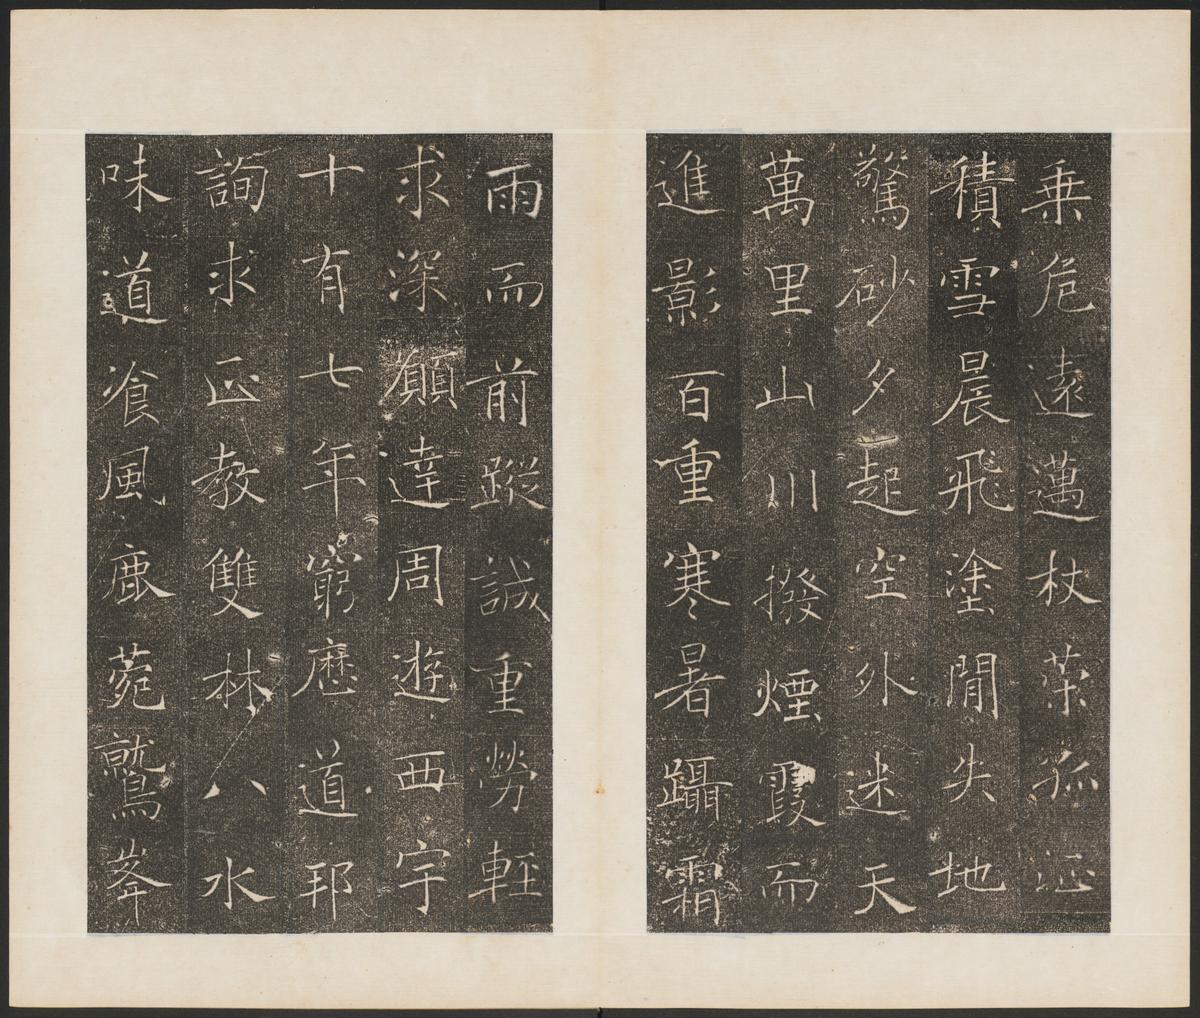 乗危遠邁杖荣孤征
積雪晨飛塗閒失地
驚砂夕起空外迷天
萬里山川撥煙霞而
進影百重寒暑躡霜
雨而前蹤誠重勞輕
求深願達周遊西宇
十有七年窮歷道邦
詢求正教雙林八水
味道飡風鹿菀鷲峯